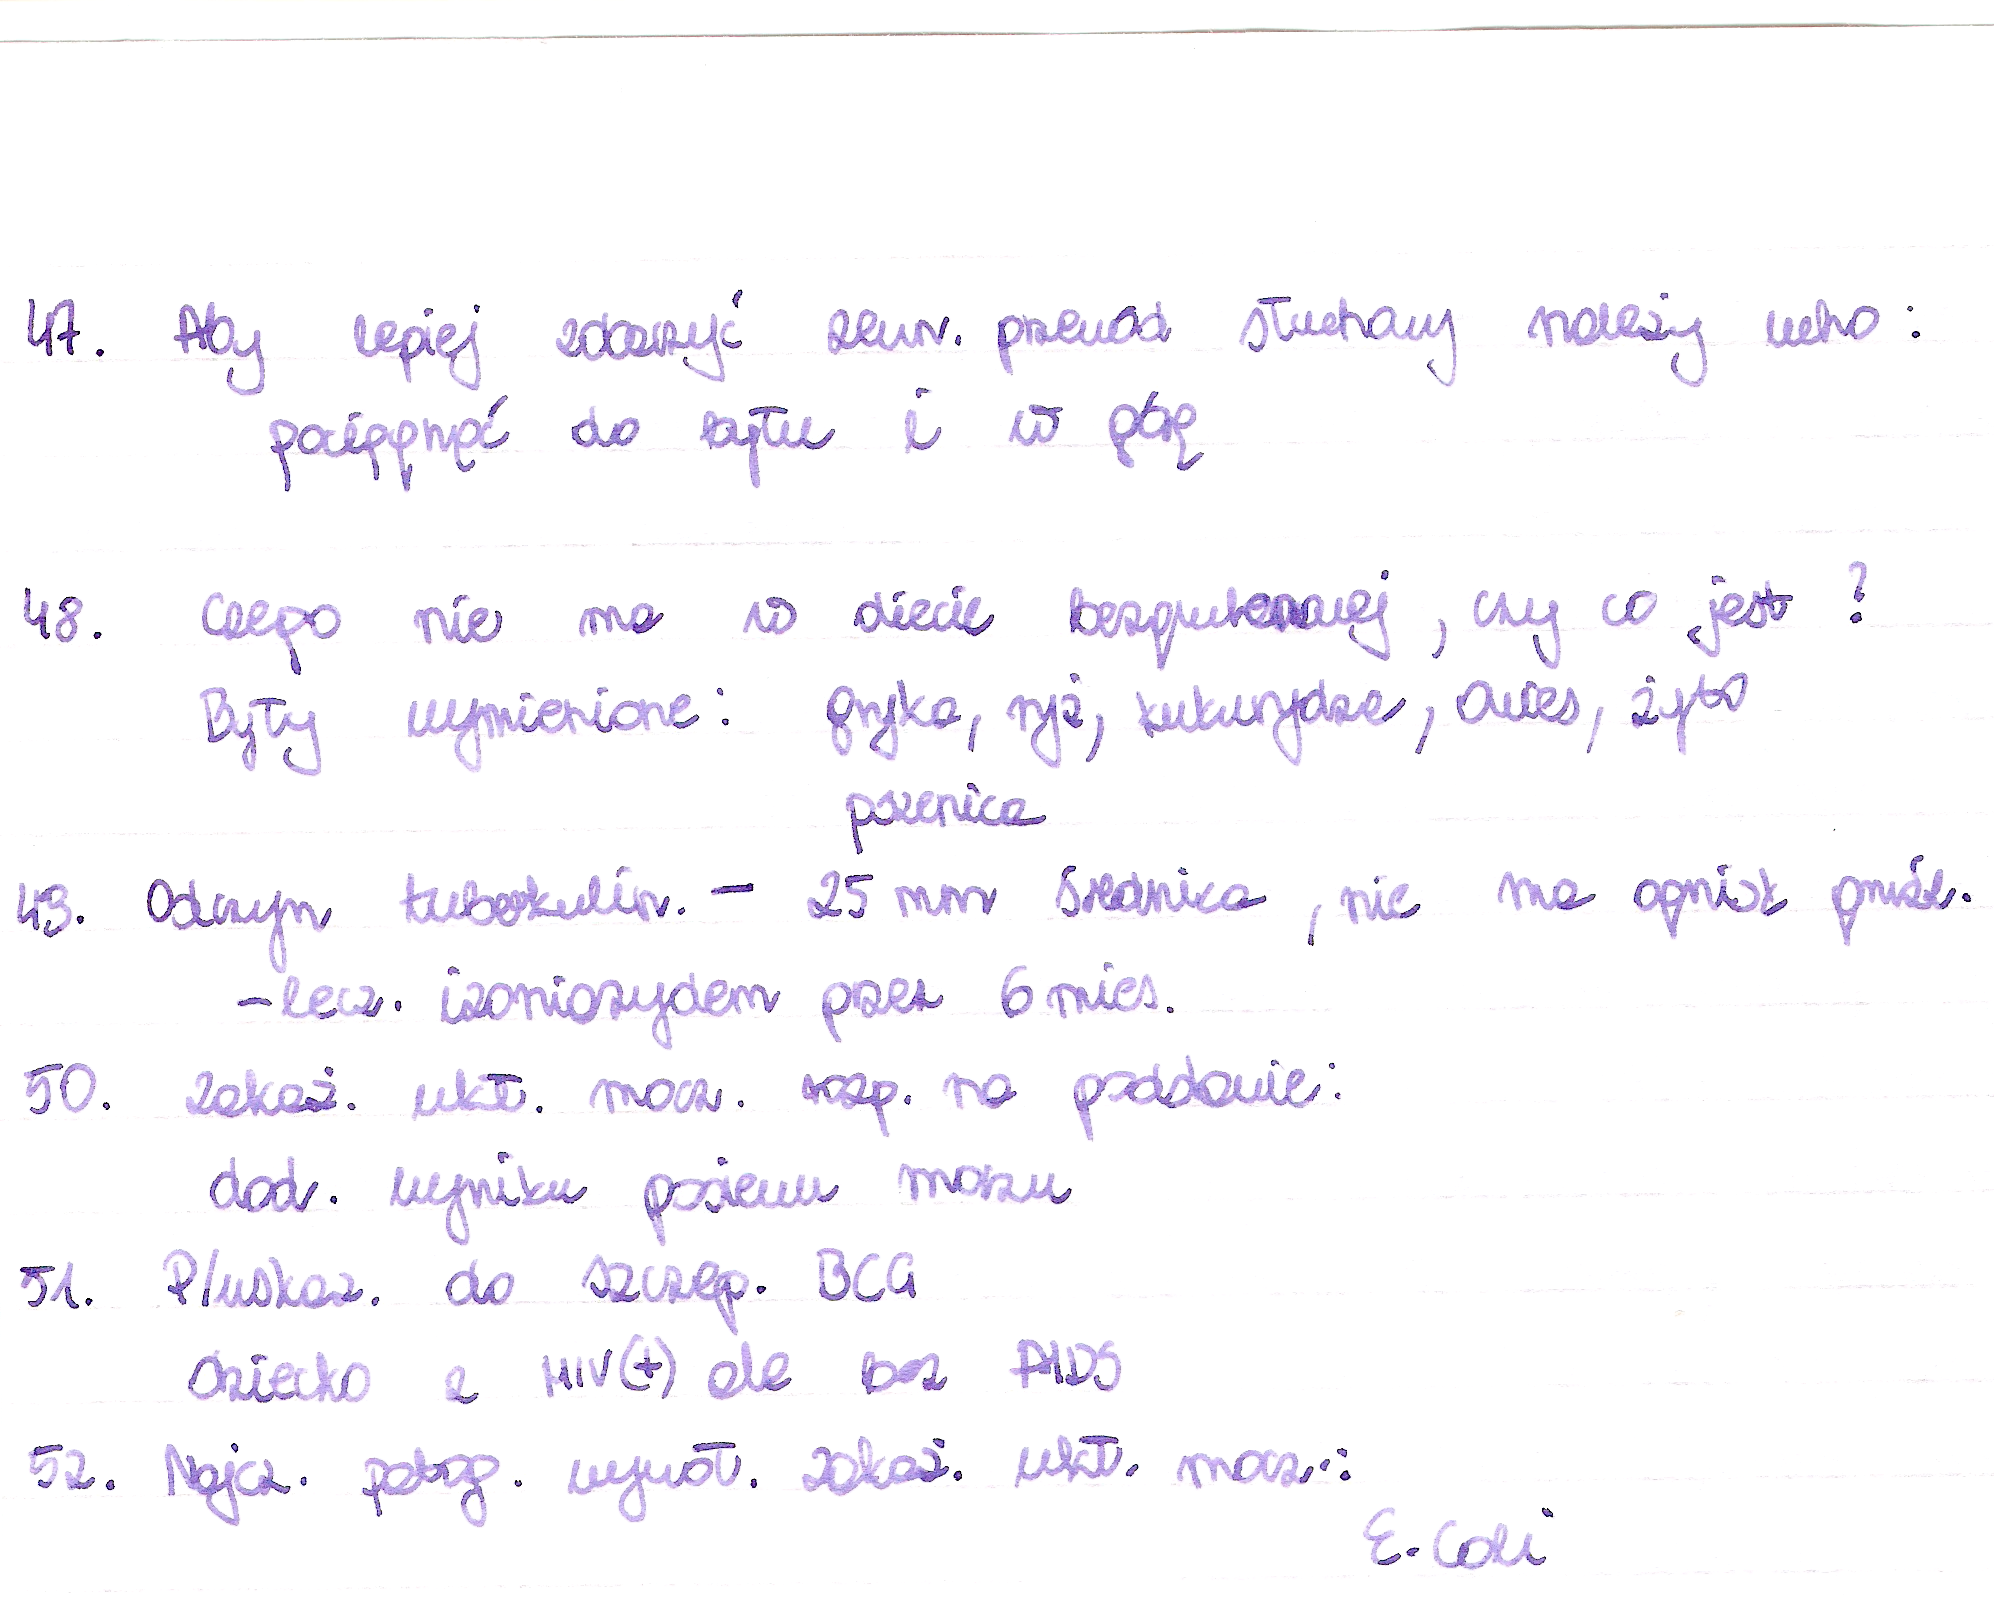 47. Aby lepiej zobaczyć zewn. przewód słuchowy należy ucho:
pociągnąć do tyłu i w górę
48. Czego nie ma w diecie bezglutenowej, czy co jest?
Były wymienione: gryka, ryż, kukurydza, owies, żyto
pszenica
49. Odczyn tuberkulin. – 25 mm średnica, nie ma ognisk gruźl.
– lecz. izoniazydem przez 6 mies.
50. Zakaż. ukł. mocz. rozp. na podstawie:
dod. wyniku posiewu moczu
51. P/wskaz. do szczep. BCG
dziecko z HIV(+) ale bez AIDS
52. Najcz. patog. wywoł. zakaż. ukł. mocz.:
E. Coli